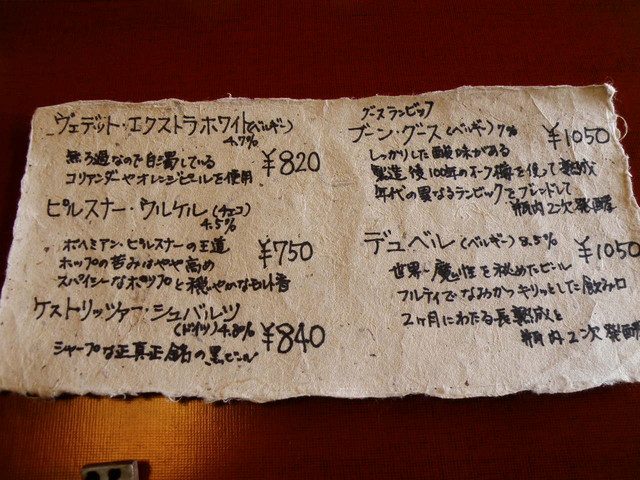 ヴェデット・エクストラホワイト(ベルギー)
4.7%
無ろ過なので白濁している
コリアンダーやオレンジピールを使用
¥820
ピルスナー・ウルケル(チェコ)
4.5%
ボヘミアン・ピルスナーの王道
ホップの苦みはやや高め
スパイシーなホップと穏やかなモルト香
¥750
ケストリッツァー・シュバルツ
(ドイツ)4.8%
¥840
シャープな正真正銘の黒ビール
グースランビック
ブーン・グース(ベルギー)7%
¥1050
しっかりした酸味がある
製造後100年のオーク樽を使って熟成
年代の異なるランビックをブレンドして
瓶内2次発酵
デュベル(ベルギー)8.5%
¥1050
世界一魔性を秘めたビール
フルティでなめらかかつキリッとした飲み口
2ヶ月にわたる長熟成と
瓶内2次発酵